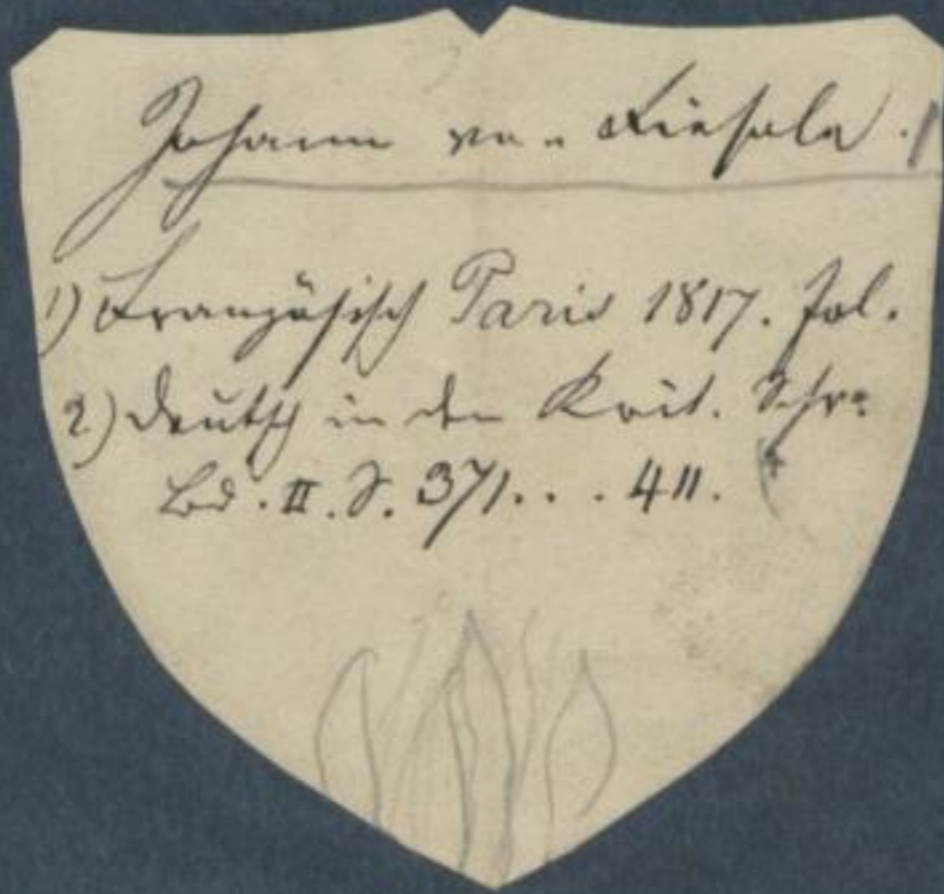 Johann von Fiesole.
1) Französisch Paris 1817. Fol.
2) Deutsch in den Krit. Schr.
Bd. II. S. 371... 411.